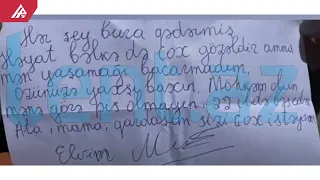 Hər şey bura qədərmiş
Həyat bəlkə də çox gözəldir amma
mən yaşamağı bacarmadım,
Özünüzə yaxşı baxın. Möhkəm olun
mənə görə pis olmayın. 22 ildə bezdim
Ata, mama, qardaşım sizi çox istəyirəm
Elvim